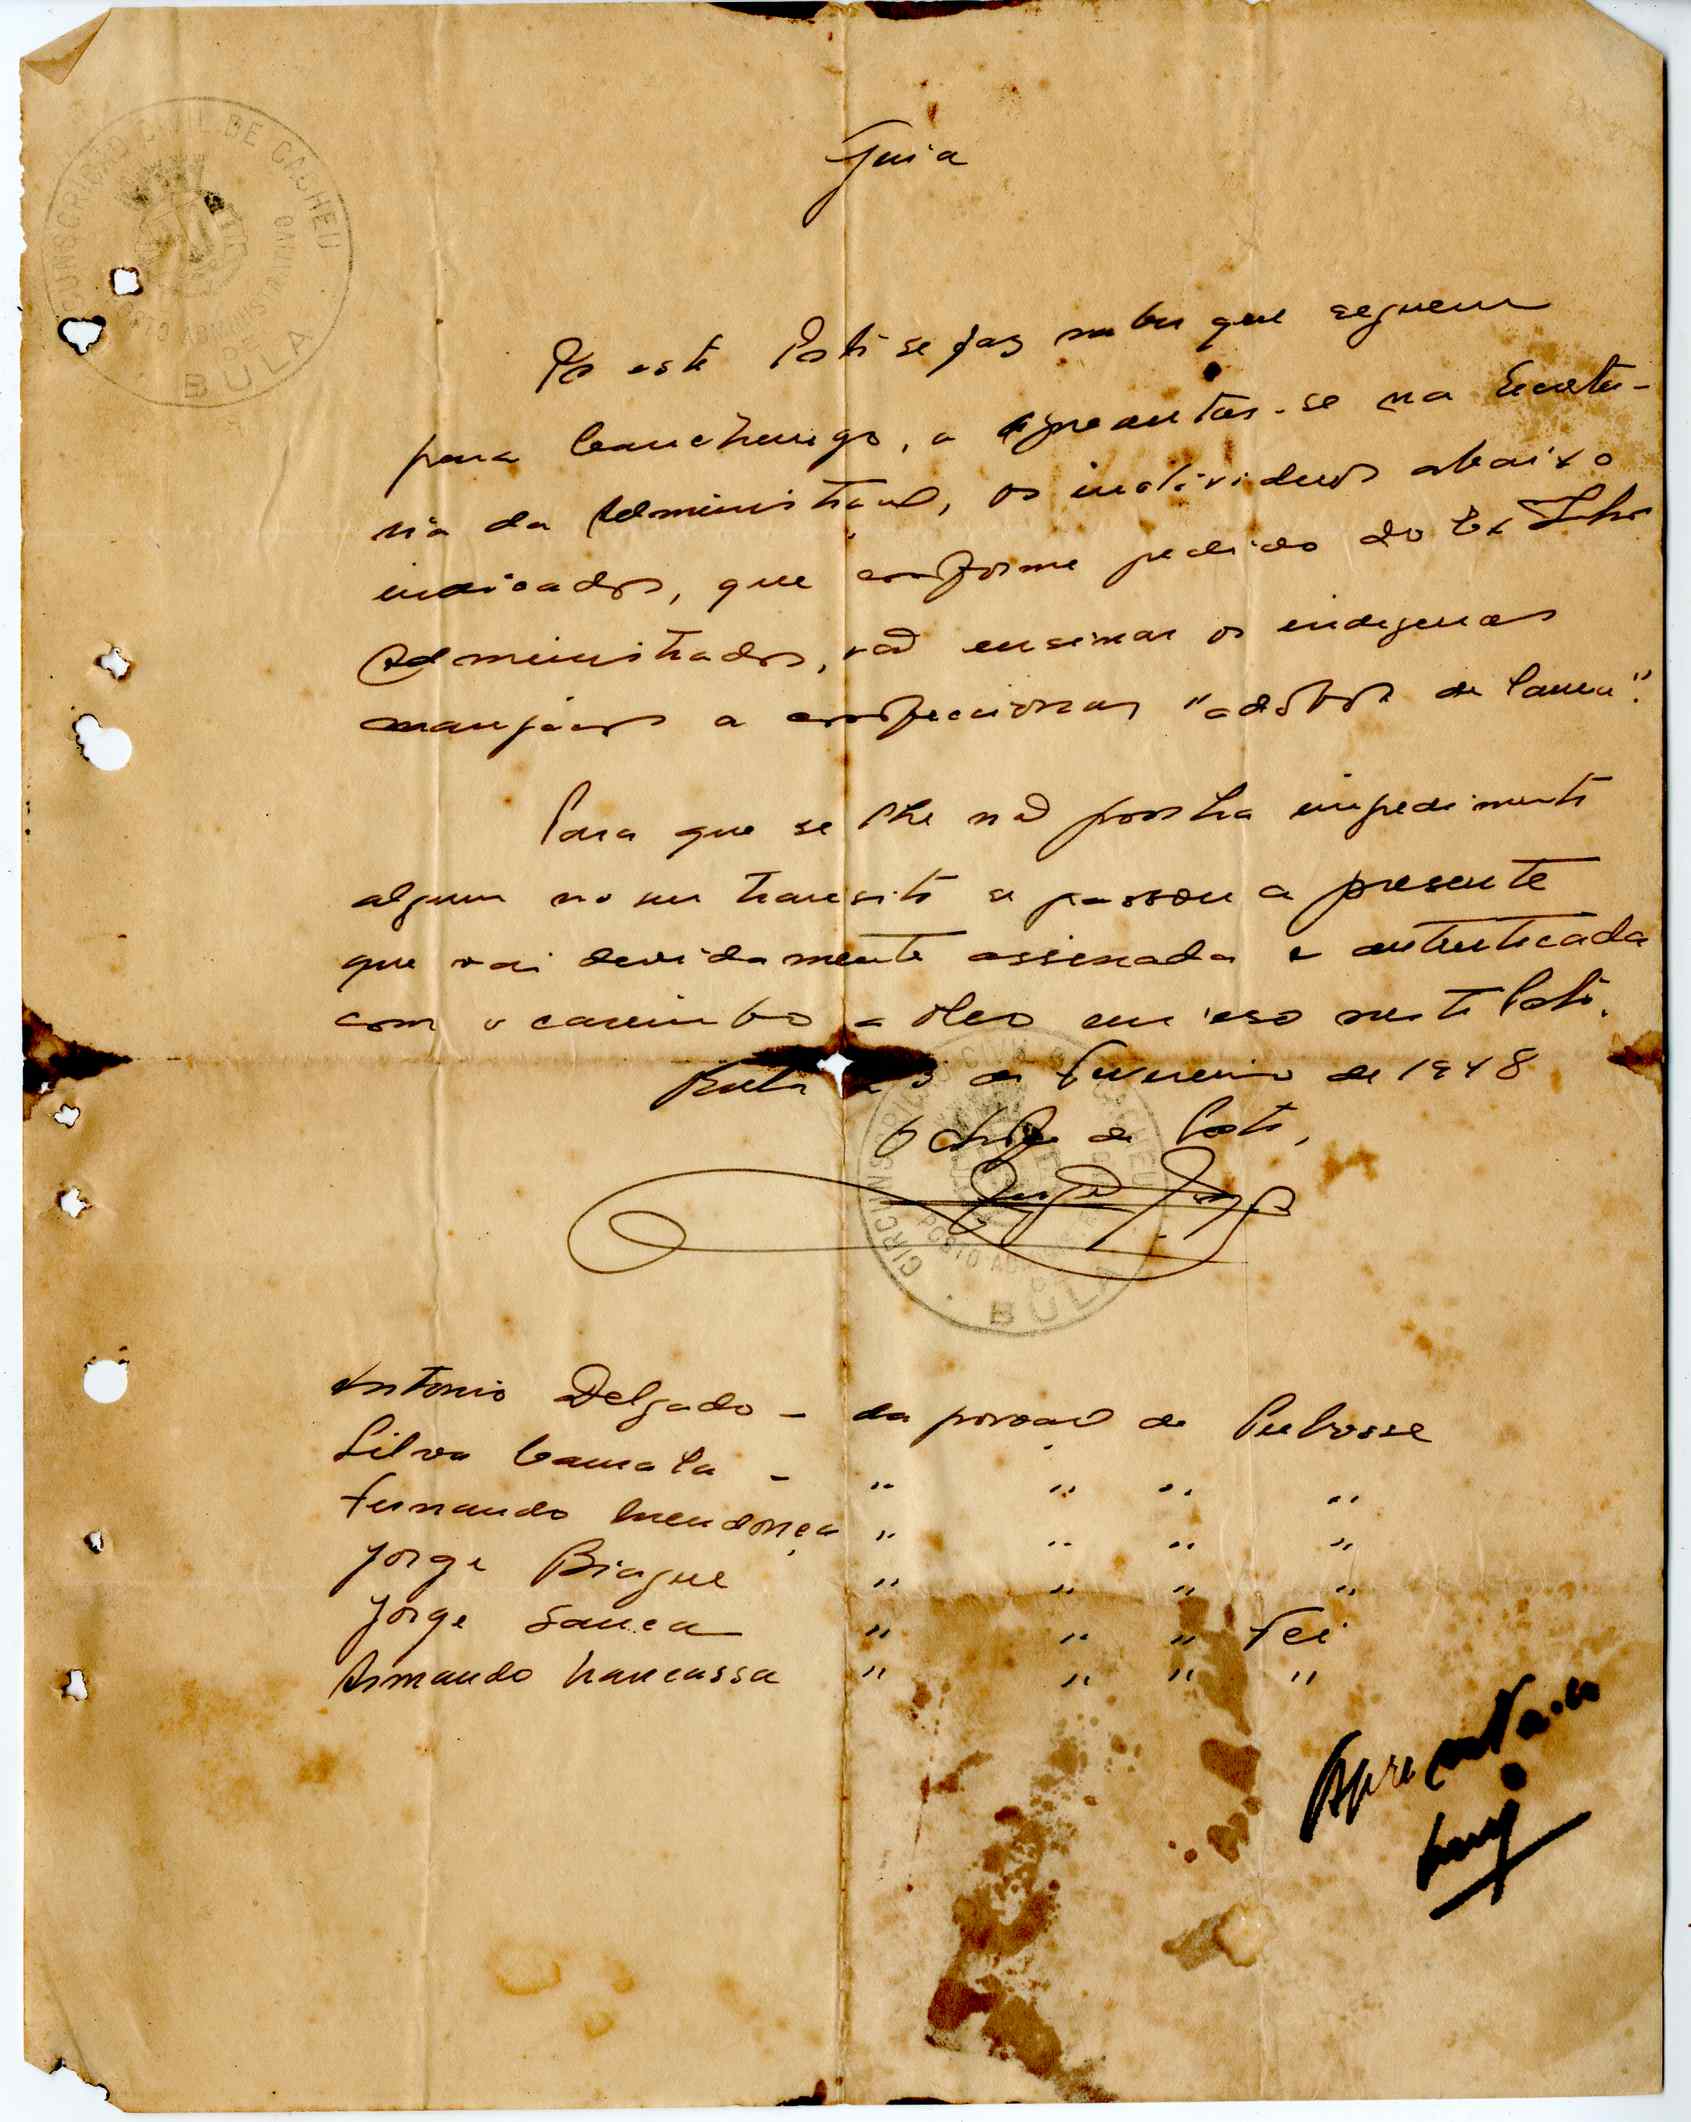 CIRCUNSCRIÇÃO CIVIL DE CACHEU
POSTO ADMINISTRATIVO
DE
BULA
Guia
Por este Posto se faz saber que seguem
para Canchungo, a apresentar-se na Secreta-
ria da Administração, os individuos abaixo
indicados, que conforme pedido do Ex Snhr
Administrador, vão ensinar os indigenas
manjacos a confeccionar "adobos de lama".
Para que se lhe não ponha impedimento
algum no seu transito se passou a presente
que vai devidamente assinada e autenticada
com o carimbo a oleo em uso neste Posto.
Bula 3 de Fevereiro de 1948
O Chefe de Posto,
CIRCUNSCRIÇÃO CIVIL DE CACHEU
POSTO ADMINISTRATIVO
DE
BULA
Antonio Delgado - da povoação de
Silva Camala - " " " "
Fernando Mendonça " " " "
Jorge Biague " " " "
Jorge Sanca " " " Fei
Armando Nancassa " " " "